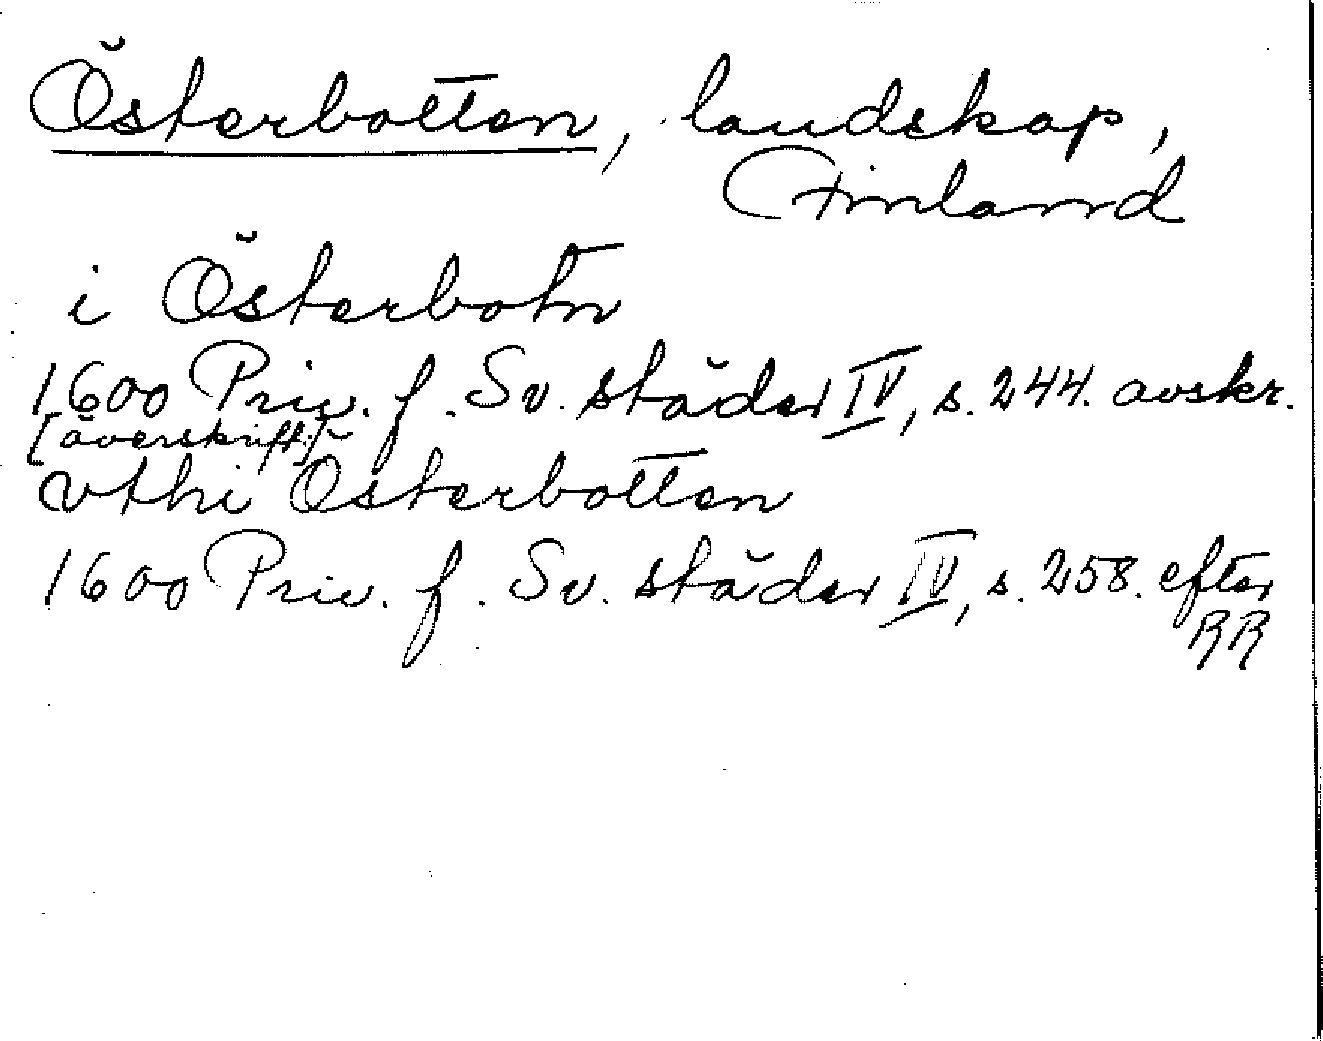 Österbotten, landskap,
Finland
i Österbotn
1600 Priv. f. Sv. städer IV, s. 244. avskr.
[överskrift]
vthi Österbotten
1600 Priv. f. Sv. städer IV, s. 258. efter
RR